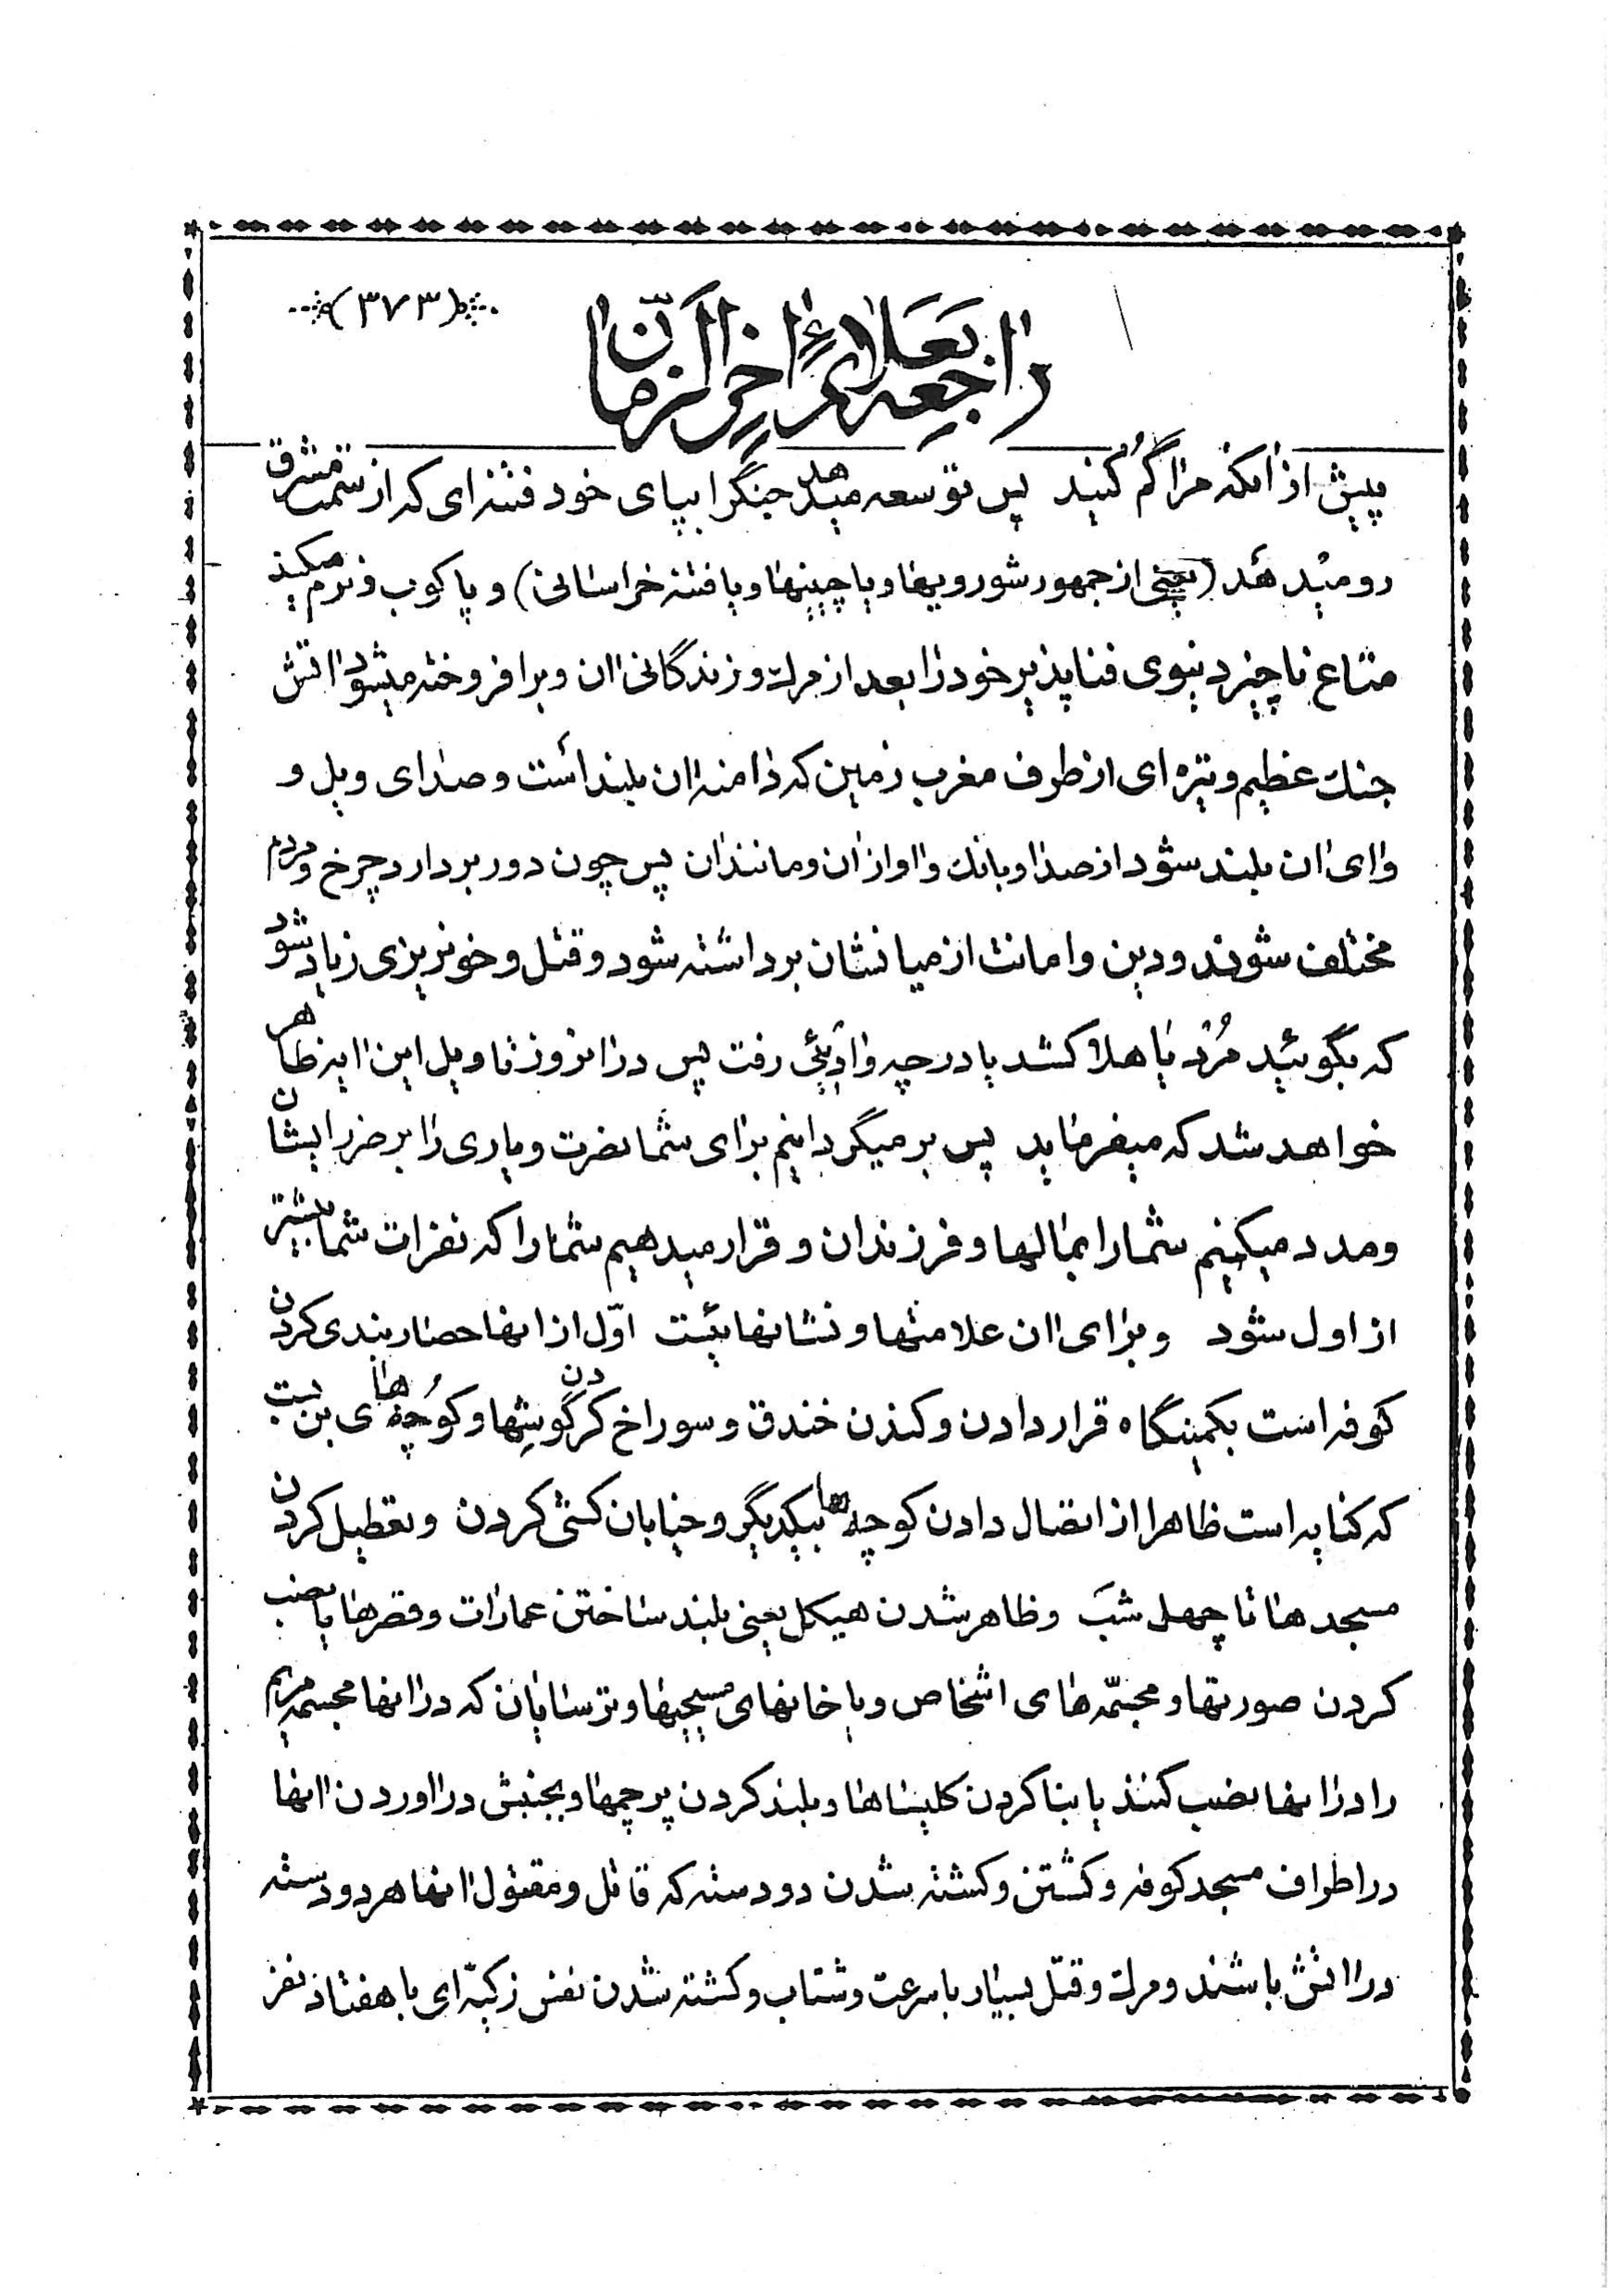 (۳۷۳)
راجعه بعلائم آخر الزمان
پیش از آنکه مرا گم کنید پس توسعه میدهد جنگ را بپای خود فتنه ای که از سمت مشرق
رو میدهد (یعنی از جمهور شورویها و یا چینیها و یا فتنه خراسانی) و پا کوب و نرم میکند
متاع ناچیز دنیوی فناپذیر خود را بعد از مرگ و زندگانی آن و برافروخته میشود آتش
جنگ عظیم و تیره ای از طرف مغرب زمین که دامنه آن بلند است و صدای ویل و
وای آن بلند شود از صدا و بانگ و آواز آن و مانند آن پس چون دور بردارد چرخ و مردم
مختلف شوند و دین و امانت از میانشان برداشته شود و قتل و خونریزی زیاد شود
که بگوئید مُرد یا هلاک شد یا در چه وادیئی رفت پس در آنروز تاویل این آیه ظاهر
خواهد شد که میفرماید پس برمیگردانیم برای شما نصرت و یاری را بر ضرر ایشان
و مدد میکنیم شما را بمالها و فرزندان و قرار میدهیم شما را که نفرات شما بیشتر
از اول شود و برای آن علامتها و نشانهائیست اوّل از آنها حصار بندی کردن
کوفه است بکمینگاه قرار دادن و کندن خندق و سوراخ کردن گوشها و کوُچه های بن بست
که کنایه است ظاهرا از اتصال دادن کوچه ها بیکدیگر و خیابان کشی کردن و تعطیل کردن
مسجدها تا چهل شب و ظاهر شدن هیکل یعنی بلند ساختن عمارات و قصرها یا نصب
کردن صورتها و مجسّمه های اشخاص و یا خانهای مسیحیها و ترسایان که در آنها مجسمه مریم
را در آنها نصب کنند یا بنا کردن کلیساها و بلند کردن پرچمها و بجنبش در آوردن آنها
در اطراف مسجد کوفه و کشتن و کشته شدن دو دسته که قاتل و مقتول آنها هر دو دسته
در آتش باشند و مرگ و قتل بسیار با سرعت و شتاب و کشته شدن نفس زکیّه ای با هفتاد نفر